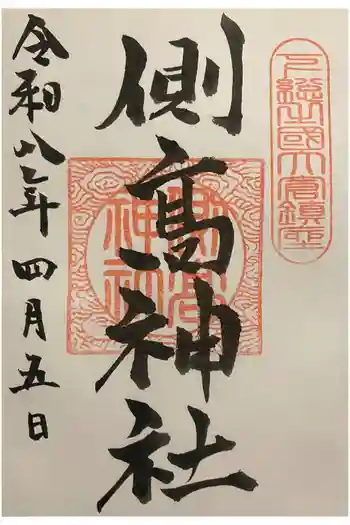 下総之國大倉鎮座
側高神社
側高神社
令和八年四月五日